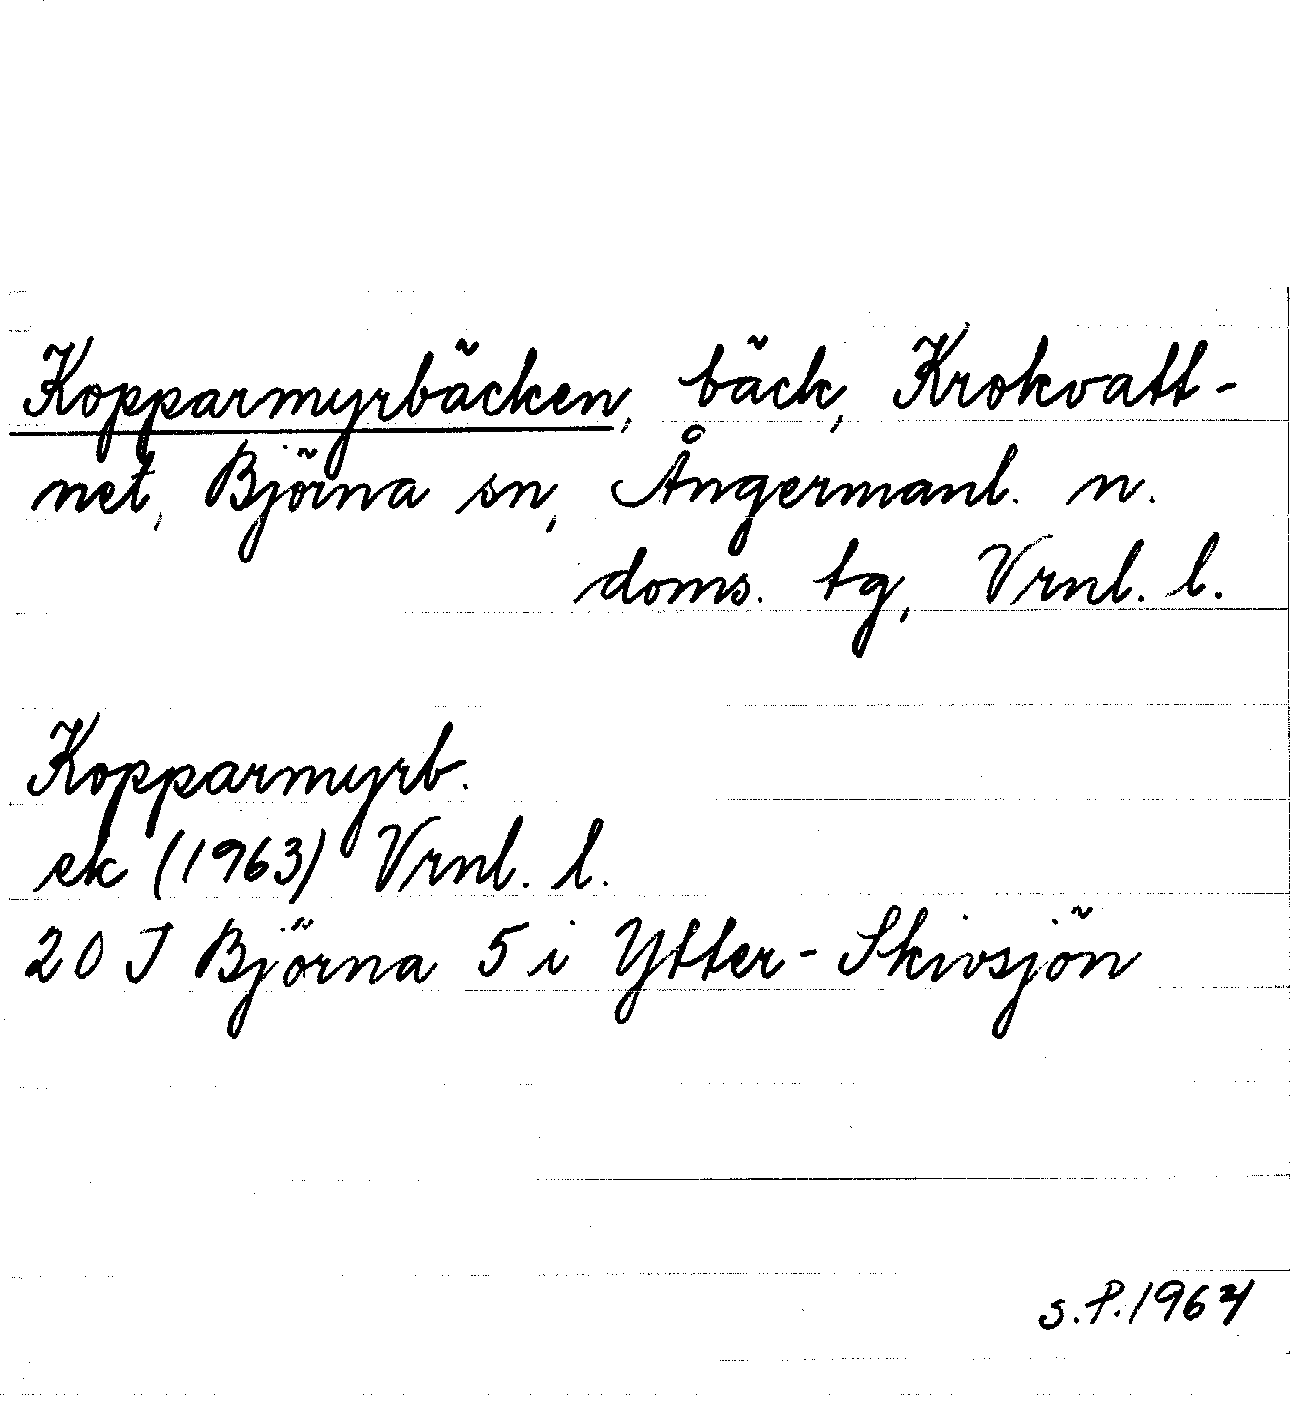 Kopparmyrbäcken, bäck, Krokvatt-
net, Björna sn, Ångermanl. n.
doms. tg, Vrnl. l.
Kopparmyrb.
ek (1963) Vrnl. l.
20 J Björna 5 i Ytter-Skivsjön
S.P. 1964